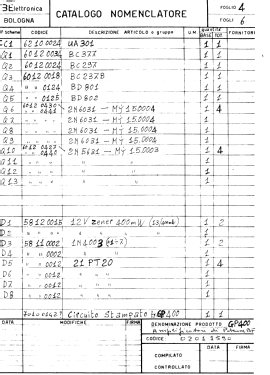 Elettronica
BOLOGNA
CATALOGO NOMENCLATORE
FOGLIO 4
FOGLI 6
N° Schema CODICE DESCRIZIONE ARTICOLO o gruppo U.M. quantità BASE TOT FORNITORE
CI1 6210 0024 UA301 1 1
Q1 6012 0034 BC377 1 1
Q2 6012 0024 BC297 1 1
Q3 6012 0018 BC237B 1 1
Q4 " " 0124 BD801 1 1
Q5 " " 0125 BD802 1 1
Q6 6012 0430 0440 2N6031 - MJ 15.0004 1 4
Q7 " " 2N6031 - MJ 15.0004 1
Q8 " " 2N6031 - MJ 15.0004 1
Q9 " " 2N6031 - MJ 15.0004 1
Q10 6012 0427 0441 2N5631 - MJ 15.0003 1 4
Q11 " " " " 1
Q12 " " " " 1
Q13 " " " " 1
D1 5812 0015 12V zener 400mW 1 2
D2 " " " " " " 1
D3 5811 0002 1N4003 1 2
D4 " " 0002 " " 1
D5 " " 0012 21PT20 1 4
D6 " " 0012 " " 1
D7 " " 0012 " " 1
D8 " " 0012 " " 1
Circuito Stampato GP400 1 1
DATA MODIFICHE FIRMA
DENOMINAZIONE PRODOTTO GP400
Amplificatore di Potenza
CODICE:
DATA FIRMA
COMPILATO
CONTROLLATO